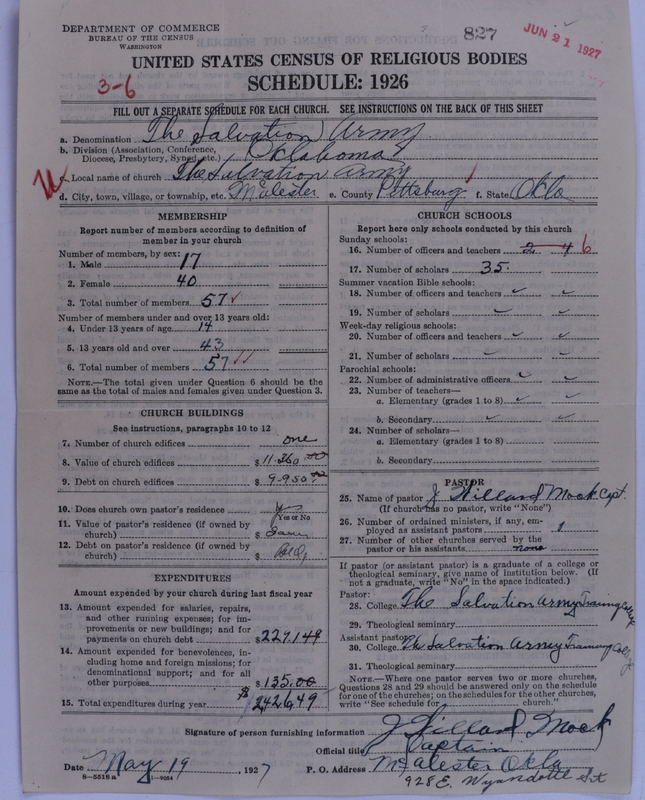 DEPARTMENT OF COMMERCE
BUREAU OF THE CENSUS
WASHINGTON
827
JUN 21 1927
UNITED STATES CENSUS OF RELIGIOUS BODIES
SCHEDULE: 1926
3-6
FILL OUT A SEPARATE SCHEDULE FOR EACH CHURCH. SEE INSTRUCTIONS ON THE BACK OF THIS SHEET
a. Denomination The Salvation Army.
b. Division (Association, Conference, Diocese, Presbytery, Synod, etc.) Oklahoma
c. Local name of church The Salvation Army
d. City, town, village, or township, etc. McAlester e. County Pittsburg f. State Okla
MEMBERSHIP
Report number of members according to definition of member in your church
Number of members, by sex:
1. Male 17
2. Female 40
3. Total number of members 57
Number of members under and over 13 years old:
4. Under 13 years of age 14
5. 13 years old and over 43
6. Total number of members 57
NOTE.—The total given under Question 6 should be the same as the total of males and females given under Question 3.
CHURCH BUILDINGS
See instructions, paragraphs 10 to 12
7. Number of church edifices one
8. Value of church edifices $ 11.360 00
9. Debt on church edifices $ 9.950.00
10. Does church own pastor's residence
Yes or No
11. Value of pastor's residence (if owned by church) $
12. Debt on pastor's residence (if owned by church) $
EXPENDITURES
Amount expended by your church during last fiscal year
13. Amount expended for salaries, repairs, and other running expenses; for improvements or new buildings; and for payments on church debt $ 2271 49
14. Amount expended for benevolences, including home and foreign missions; for denominational support; and for all other purposes $ 135.00
15. Total expenditures during year $
CHURCH SCHOOLS
Report here only schools conducted by this church
Sunday schools:
16. Number of officers and teachers 2 4 6
17. Number of scholars 35
Summer vacation Bible schools:
18. Number of officers and teachers
19. Number of scholars
Week-day religious schools:
20. Number of officers and teachers
21. Number of scholars
Parochial schools:
22. Number of administrative officers
23. Number of teachers—
a. Elementary (grades 1 to 8)
b. Secondary
24. Number of scholars—
a. Elementary (grades 1 to 8)
b. Secondary
PASTOR
25. Name of pastor J Willard Mock Capt.
(If church has no pastor, write "None")
26. Number of ordained ministers, if any, employed as assistant pastors 1
27. Number of other churches served by the pastor or his assistants none
If pastor (or assistant pastor) is a graduate of a college or theological seminary, give name of institution below. (If not a graduate, write "No" in the space indicated.)
Pastor:
28. College The Salvation Army Training College
29. Theological seminary
Assistant pastor:
30. College The Salvation Army Training
31. Theological seminary
NOTE.—Where one pastor serves two or more churches, Questions 28 and 29 should be answered only on the schedule for one of the churches; on the schedules for the other churches, write "See schedule for church."
Signature of person furnishing information J Willard Mock
Official title Captain
Date May 19, 1927 P. O. Address McAlester Okla
8—5518 a
928 E. Wyandotte St